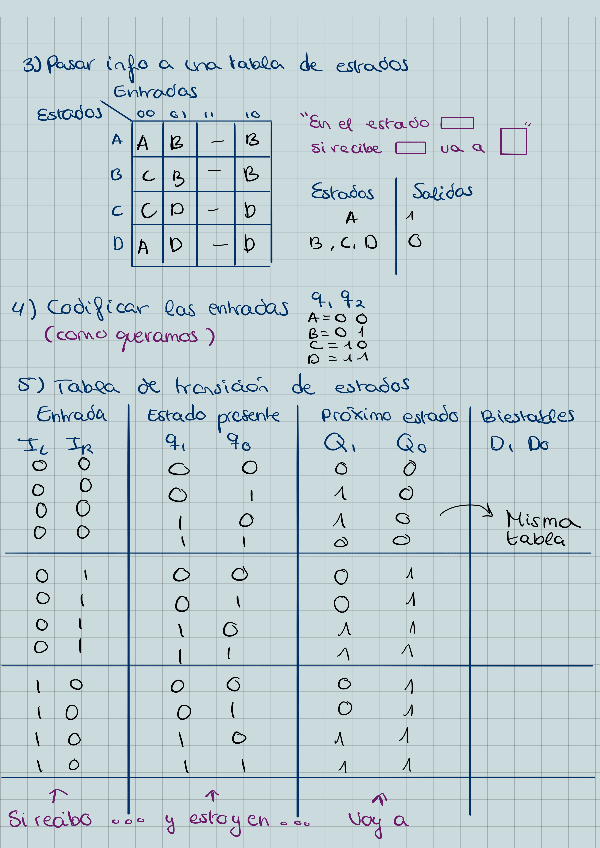 3) Pasar info a una tabla de estados
Entradas
Estados 00 01 11 10
A A B — B
B C B — B
C C D — D
D A D — D
"En el estado
si recibe va a "
Estados Salidas
A 1
B, C, D 0
4) Codificar las entradas
(como queramos)
q1 q2
A=0 0
B=0 1
C=1 0
D=1 1
5) Tabla de transición de estados
Entrada Estado presente Próximo estado Biestables
IL IR q1 q0 Q1 Q0 D1 D0
0 0 0 0 0 0
0 0 0 1 1 0
0 0 1 0 1 0
0 0 1 1 0 0
Misma
tabla
0 1 0 0 0 1
0 1 0 1 0 1
0 1 1 0 1 1
0 1 1 1 1 1
1 0 0 0 0 1
1 0 0 1 0 1
1 0 1 0 1 1
1 0 1 1 1 1
Si recibo ... y estoy en ... voy a